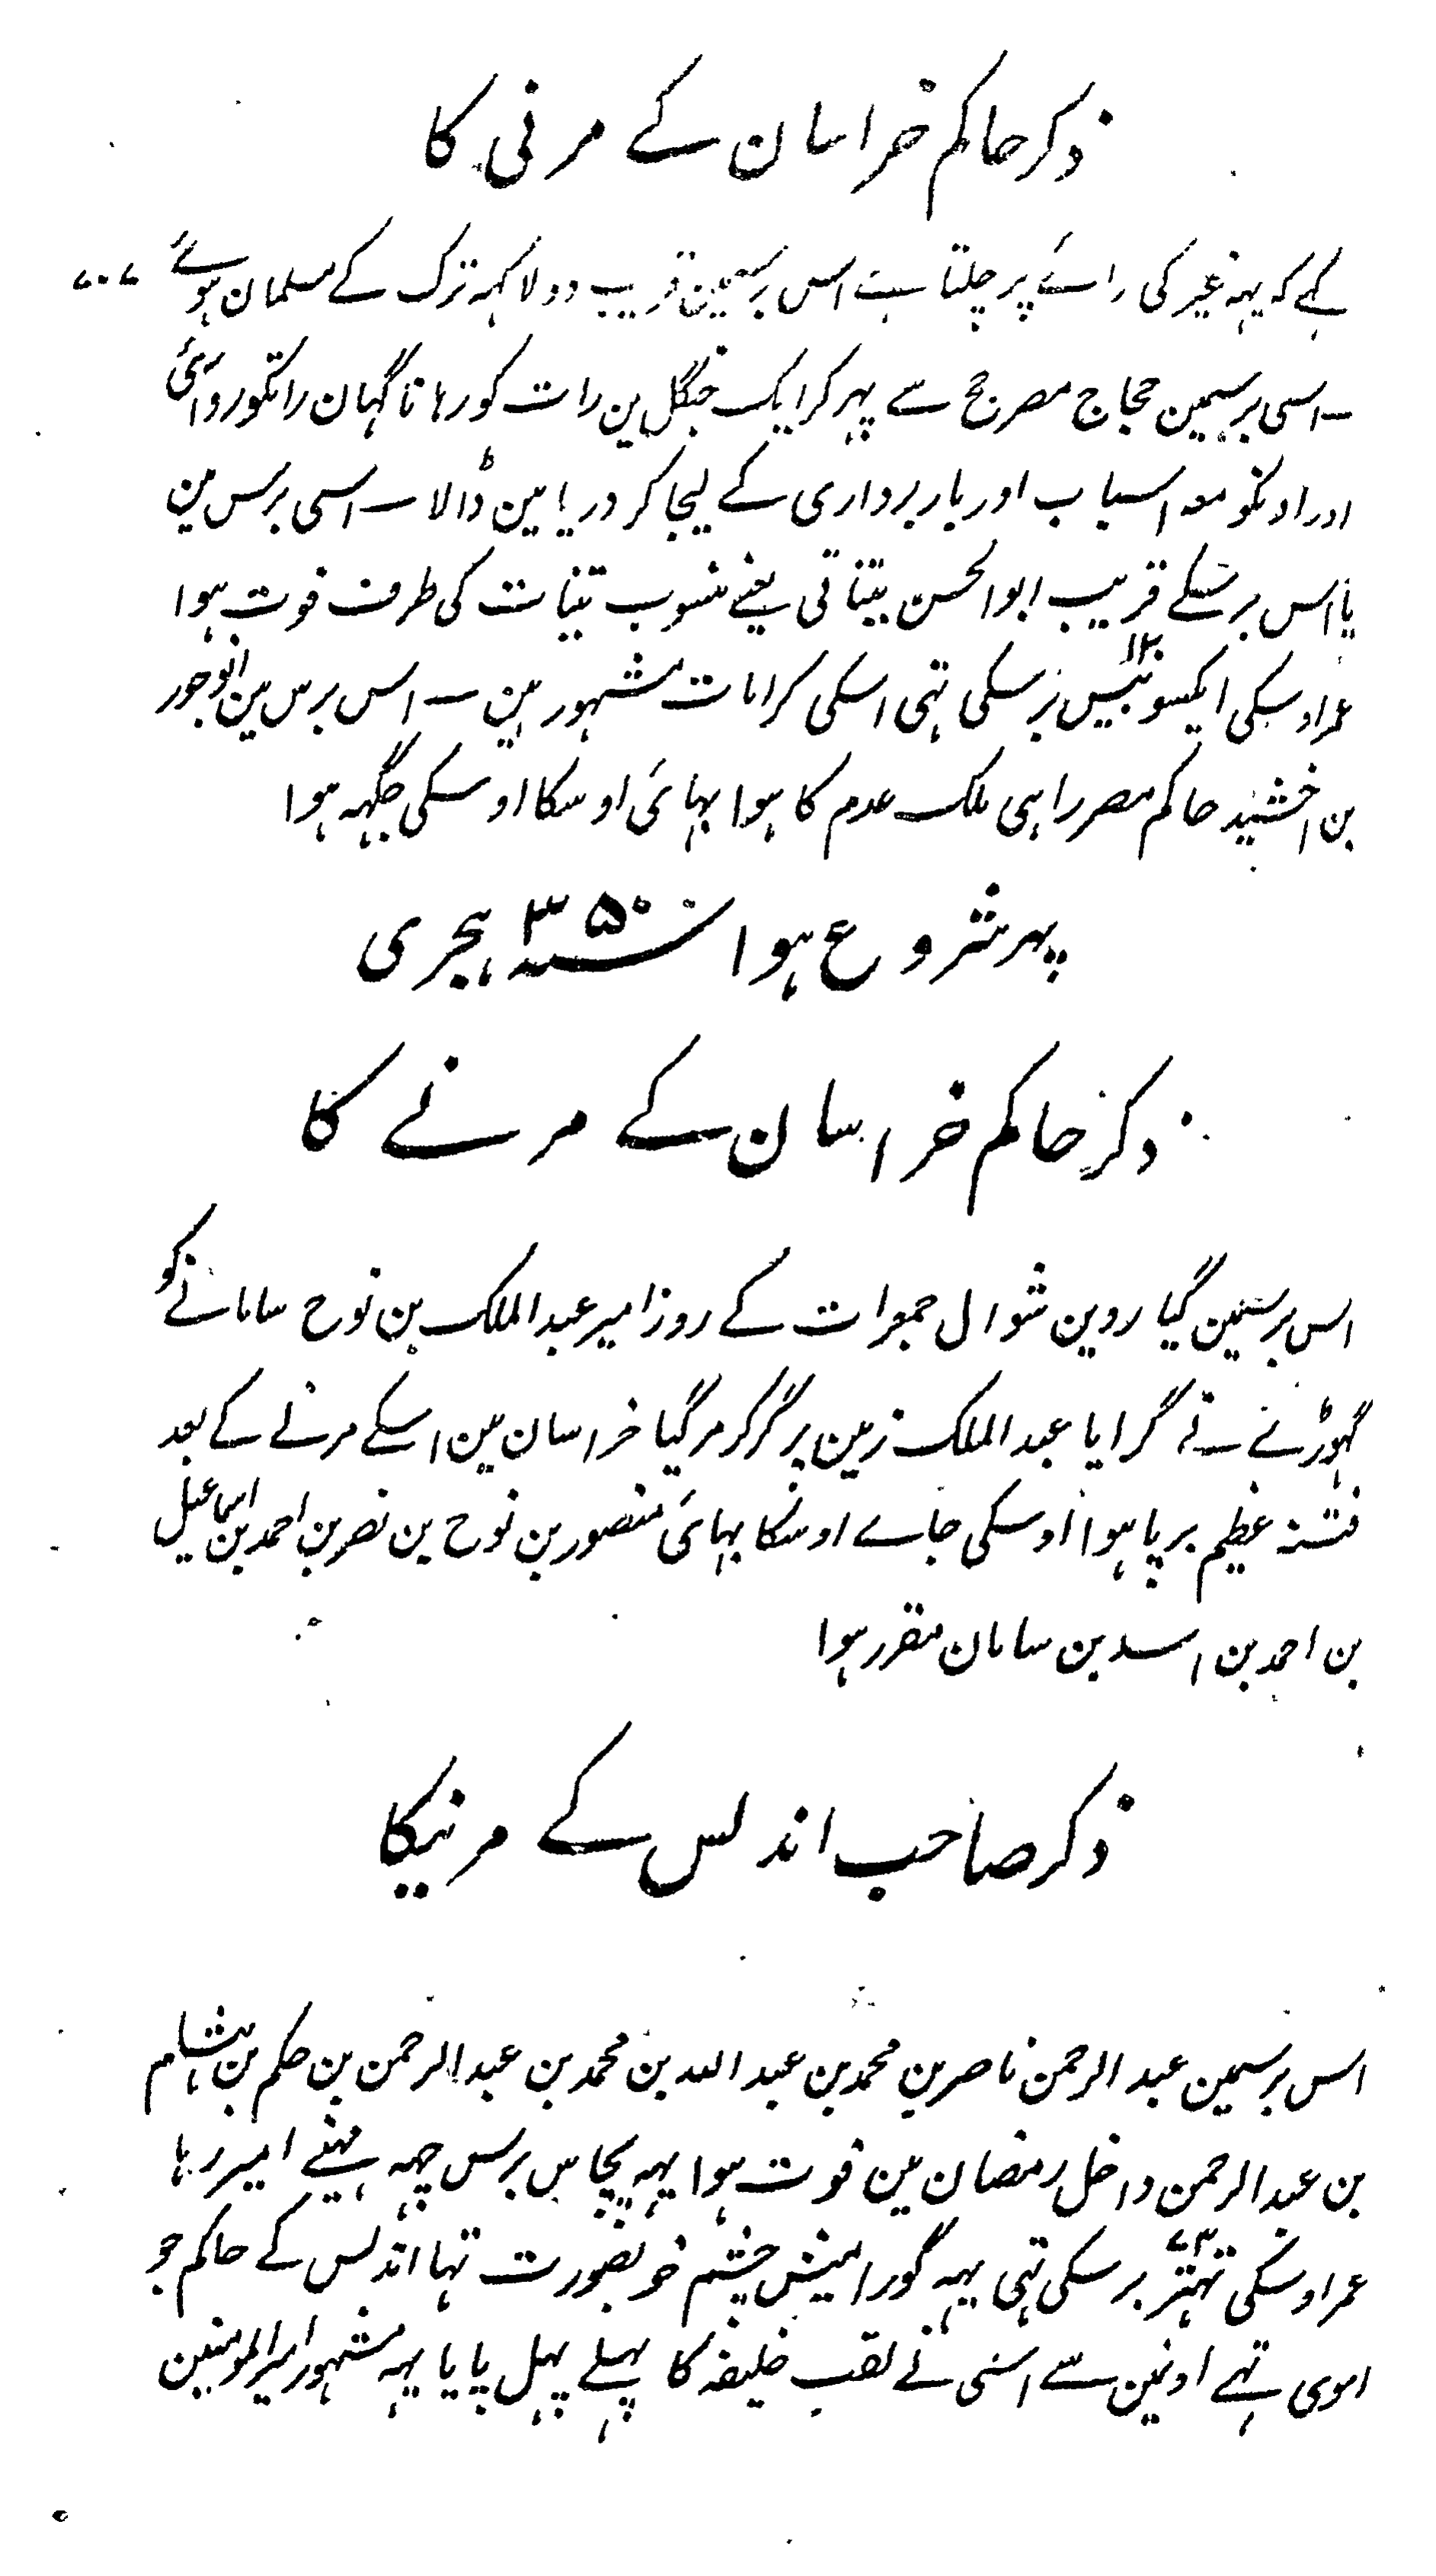 ذکر حاکم خراسان کے مرنی کا
کہے کہ یہہ غیر کی رائے پر چلتا ہے اس برسمین قریب دو لاکہہ ترک کے مسلمان ہوئے ۷۰۷
ـ اسی برسمین حجاج مصر حج سے پہر کر ایک جنگل مین رات کو رہا ناگہان رانکو رو آئی
اور اونکو معہ اسباب اور بار برداری کے لیجا کر دریا مین ڈالا ـ اسی برس مین
یا اس برسکے قریب ابو الحسن تیناتی یعنے منسوب تینات کی طرف فوت ہوا
عمر اوسکی ایکسو بیس ۱۲۰ برسکی تہی اسکی کرامات مشہور ہین ـ اس برس مین انوجور
بن اخشید حاکم مصر راہی ملک عدم کا ہوا بہائی اوسکا اوسکی جگہہ ہوا
پہر شروع ہوا سنہ ۳۵۰ ہجری
ذکر حاکم خراسان کے مرنے کا
اس برسمین گیاروین شوال جمعرات کے روز امیر عبد الملک بن نوح سامانے کو
گہوڑنے نے گرایا عبد الملک زمین پر گر کر مر گیا خراسان مین اسکے مرنے کے بعد
فتنہ عظیم برپا ہوا اوسکی جاے اوسکا بہائی منصور بن نوح بن نصر بن احمد بن اسماعیل
بن احمد بن اسد بن سامان مقرر ہوا
ذکر صاحب اندلس کے مرنیکا
اس برسمین عبد الرحمن ناصر بن محمد بن عبد اللہ بن محمد بن عبد الرحمن بن حکم بن ہشام
بن عبد الرحمن داخل رمضان مین فوت ہوا یہہ پچاس برس چہہ مہنے امیر رہا
عمر اوسکی تہتر ۷۳ برسکی تہی یہہ گورا میش چشم خوبصورت تہا اندلس کے حاکم جو
اموی تہے اونمین سے اسنی نے لقب خلیفہ کا پہلے پہل پایا یہہ مشہور امیر المومنین